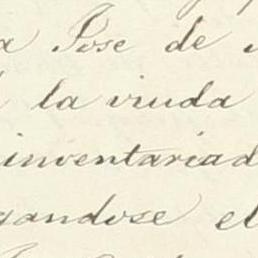 a Jose de
la viuda
inventariad
gandose el